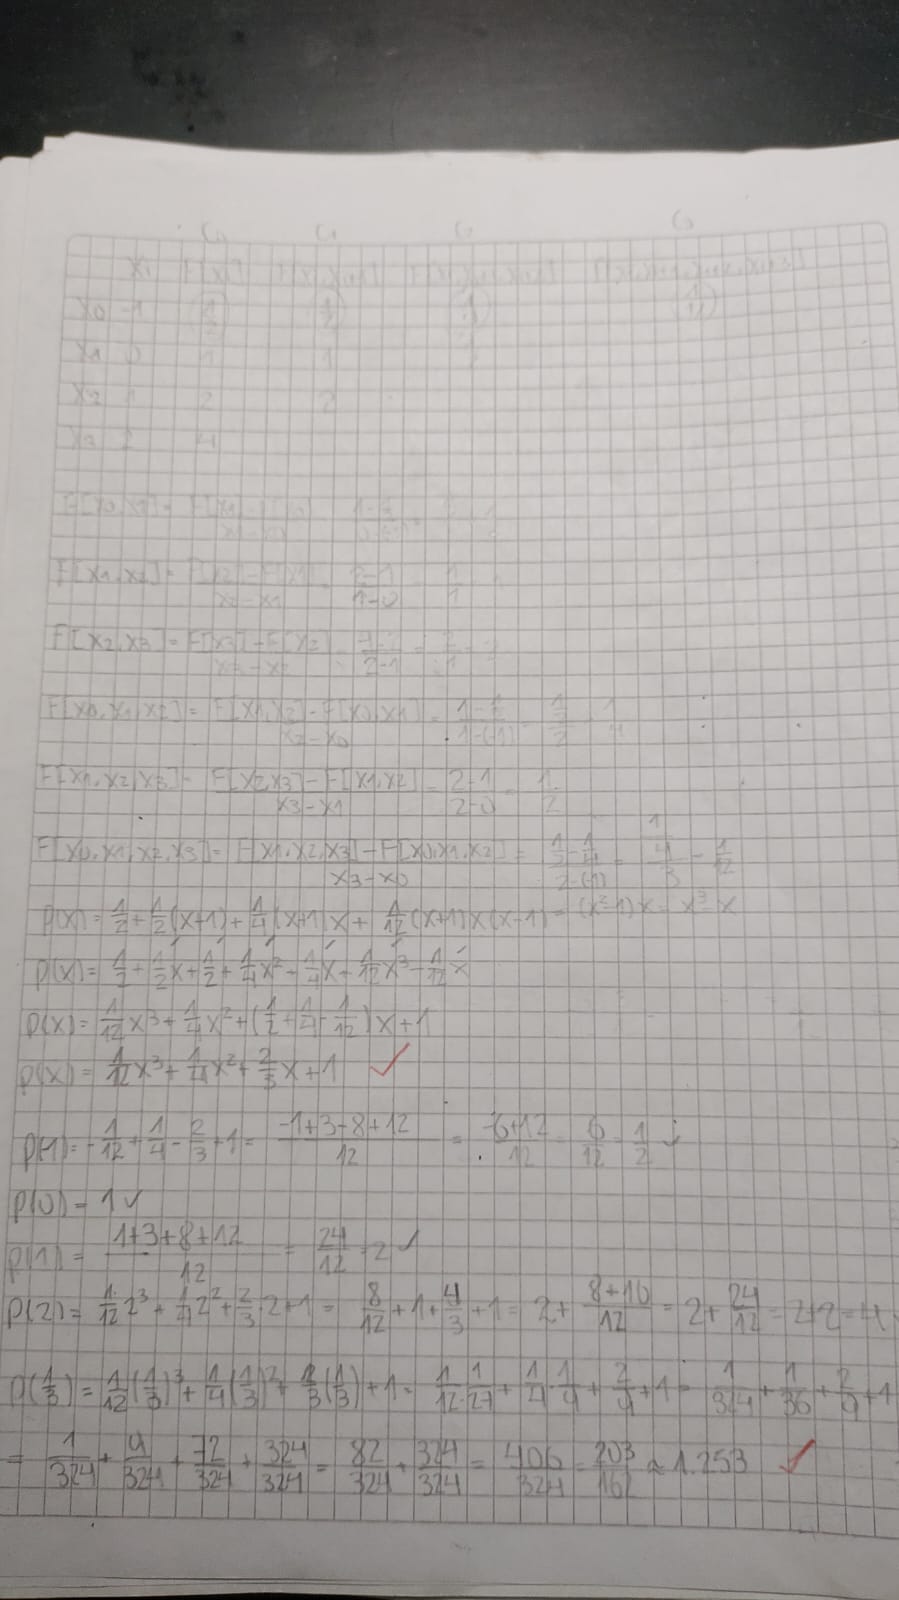 C1
xi F[xi]
x0 -1 1/2 1/2 1/4 1/12
x1 0 1 1
x2 1 2 2
x3 2 4
F[x0,x1] = F[x1]-F[x0] / x1-x0
F[x1,x2] = F[x2]-F[x1] / x2-x1 = 2-1 / 1-0 = 1/1
F[x2,x3] = F[x3]-F[x2] / x3-x2
F[x0,x1,x2] = F[x1,x2]-F[x0,x1] / x2-x0 = 1-1/2 / 1-(-1) = 1/2 / 2 = 1/4
F[x1,x2,x3] = F[x2,x3]-F[x1,x2] / x3-x1 = 2-1 / 2-0 = 1/2
F[x0,x1,x2,x3] = F[x1,x2,x3]-F[x0,x1,x2] / x3-x0 = 1/2-1/4 / 2-(-1) = 1/4 / 3 = 1/12
p(x) = 1/2 + 1/2(x+1) + 1/4(x+1)x + 1/12(x+1)x(x-1) = (x²-1)x = x³-x
p(x) = 1/2 + 1/2x + 1/2 + 1/4x² + 1/4x + 1/12x³ - 1/12x
p(x) = 1/12x³ + 1/4x² + (1/2 + 1/4 - 1/12)x + 1
p(x) = 1/12x³ + 1/4x² + 2/3x + 1 ✓
p(-1) = -1/12 + 1/4 - 2/3 + 1 = -1+3-8+12 / 12 = -6+12 / 12 = 6/12 = 1/2 ✓
p(0) = 1 ✓
p(1) = 1+3+8+12 / 12 = 24/12 = 2 ✓
p(2) = 1/12 2³ + 1/4 2² + 2/3 · 2 + 1 = 8/12 + 1 + 4/3 + 1 = 2 + 8+16 / 12 = 2 + 24/12 = 2+2 = 4
p(1/3) = 1/12(1/3)³ + 1/4(1/3)² + 2/3(1/3) + 1 = 1/12 · 1/27 + 1/4 · 1/9 + 2/9 + 1 = 1/324 + 1/36 + 2/9 + 1
= 1/324 + 9/324 + 72/324 + 324/324 = 82/324 + 324/324 = 406/324 = 203/162 ≈ 1.253 ✓